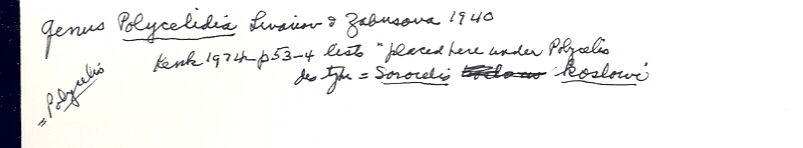 genus Polycelidia Livanov & Zabusova 1940
Kenk 1974 p53-4 lists "placed here under Polycelis
des type = Sorocelis koslowi
= Polycelis